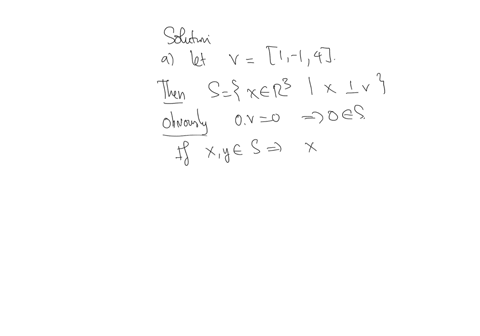 Solution
a) let v = [1,-1,4].
Then S={ x∈ℝ³ | x ⊥ v }
Obviously 0.v=0 ⇒ 0∈S.
If x,y∈ S ⇒ x